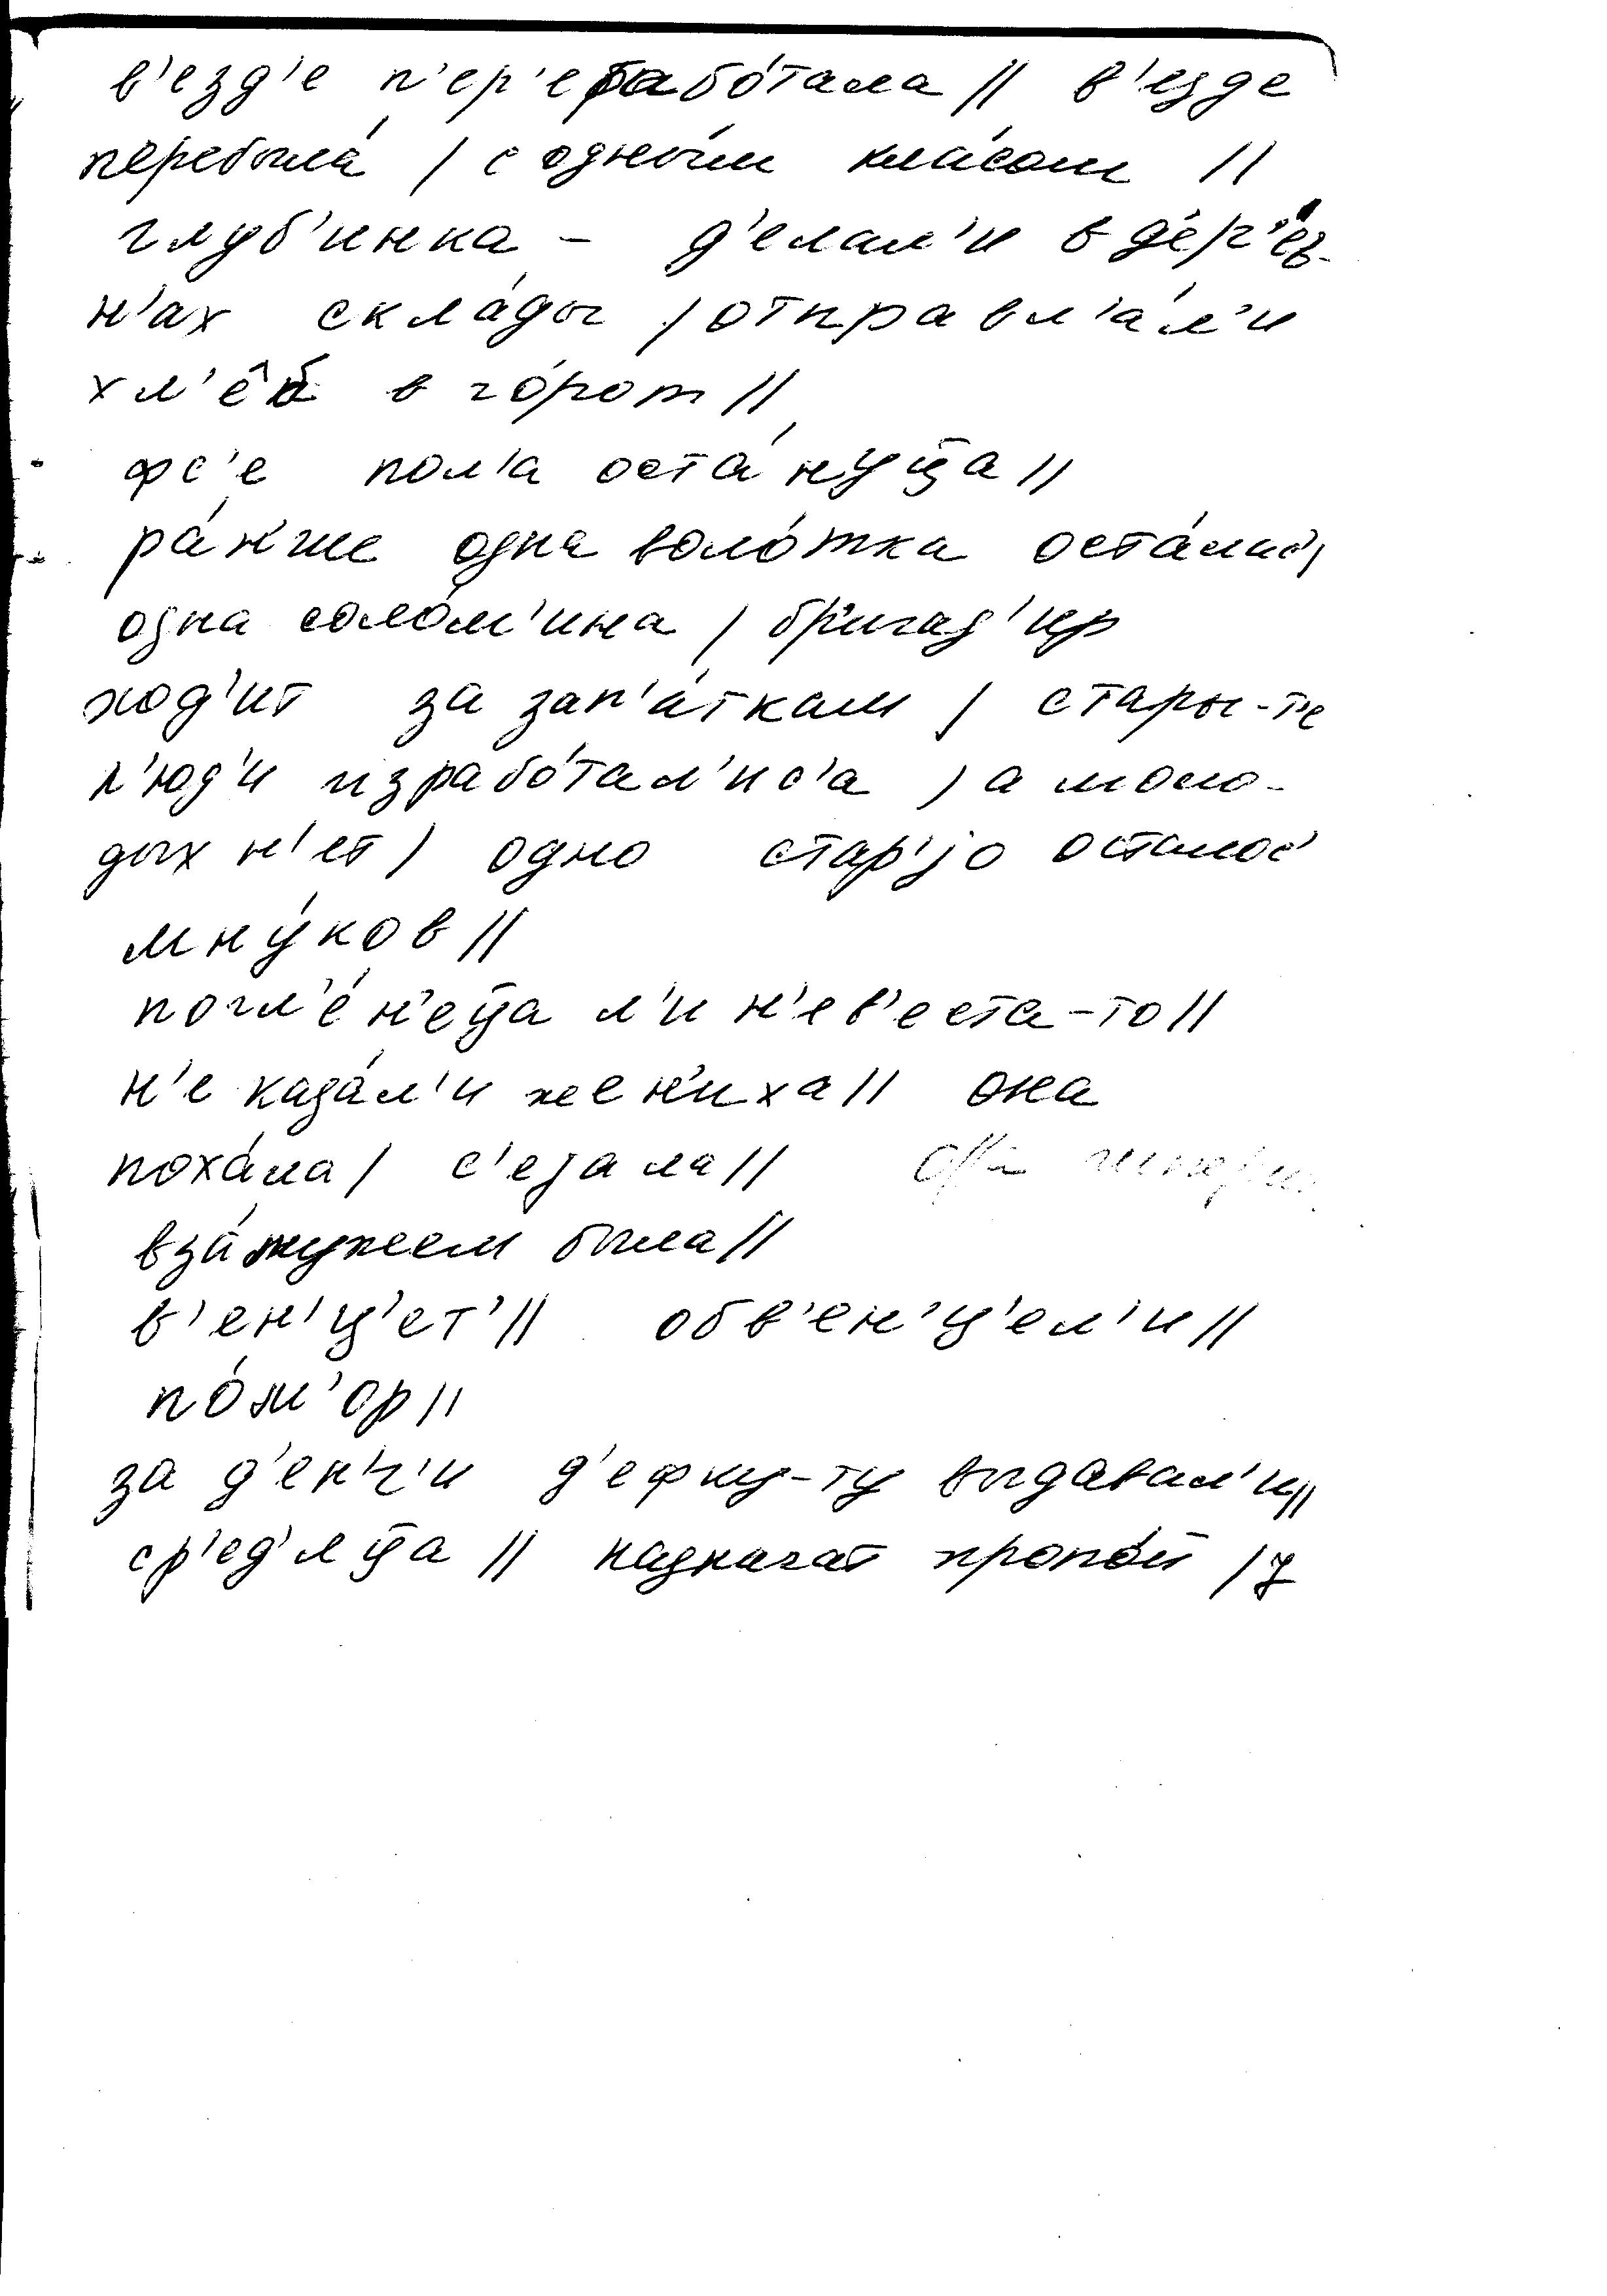 в'езд'е п'ер'еработала || в'езде
перебыла́ / с одны́м кла́сом ||
глуб'инка – д'елал'и в де́р'ев-
н'ах скла́ды / отправл'а́л'и
хл'е̂б в го́рот ||
фс'е пол'а оста́нуц̄а ||
ра́н'ше одна воло́тка оста́лас' /
одна соло́м'ина / бр'игад'ир
ход'ит за зап'а́ткам / стары-те
л'юд'и израбо́тал'ис'а / а моло-
дых н'ет / одно стар'jо осталос'
мну́ков ||
погл'е́н'ец̄а л'и н'ев'еста-то ||
н'е каза́л'и жен'иха || она
поха́ла / с'еjала ||
вза́мужеем была ||
в'ен'ц'ет' || обв'ен'ц'ел'и ||
по́м'ор ||
за д'ен'г'и д'ефку-ту выдавал'и ||
ср'ед'яц̄а || назначат пропо́й /